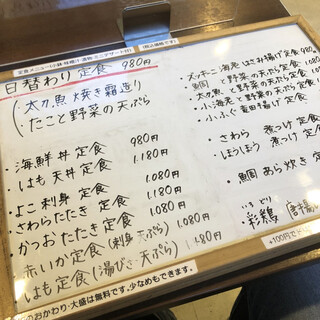 日替わり定食 980円
太刀魚 焼き霜造り
たこと野菜の天ぷら
・海鮮丼定食 980円
・はも天丼定食 1.180円
・よこ刺身定食 1.080円
・さわらたたき定食 1.080円
・かつおたたき定食 1.080円
・赤いか定食(刺身 天ぷら) 1.080円
・はも定食(湯びき・天ぷら) 1.480円
のおかわり・大盛は無料です。少なめもできます。
・ズッキーニ海老はさみ揚げ定食 980
・鯛 と野菜の天ぷら定食
・太刀魚 と野菜の天ぷら定食
・小海老と野菜の天ぷら定食
・小ふぐ 竜田揚げ定食
・さわら 煮つけ定食
・ほうぼう 煮つけ定食
・鯛 あら炊き定
いろどり
・彩鶏 唐揚
+100円で